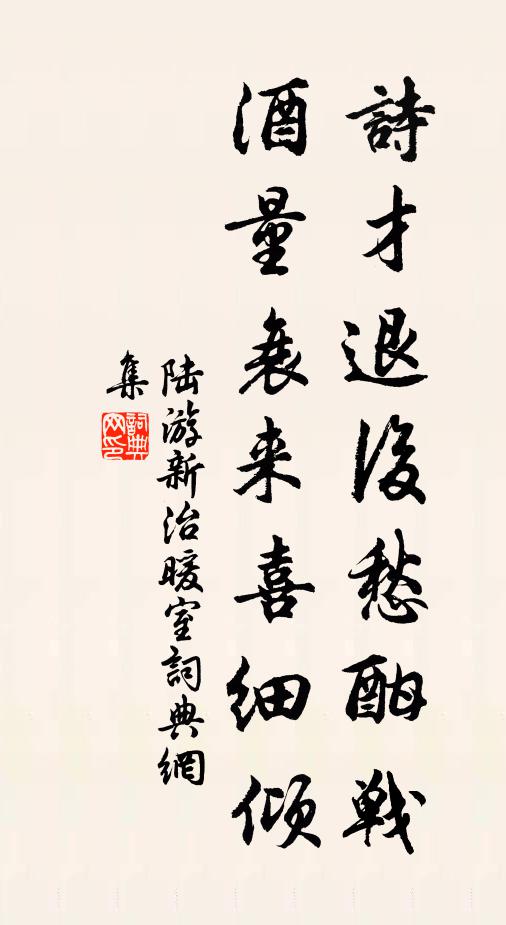 詩才退後愁酣戰
酒量衰来喜細傾
陆游新治暖室詞典網
集
詞典網印